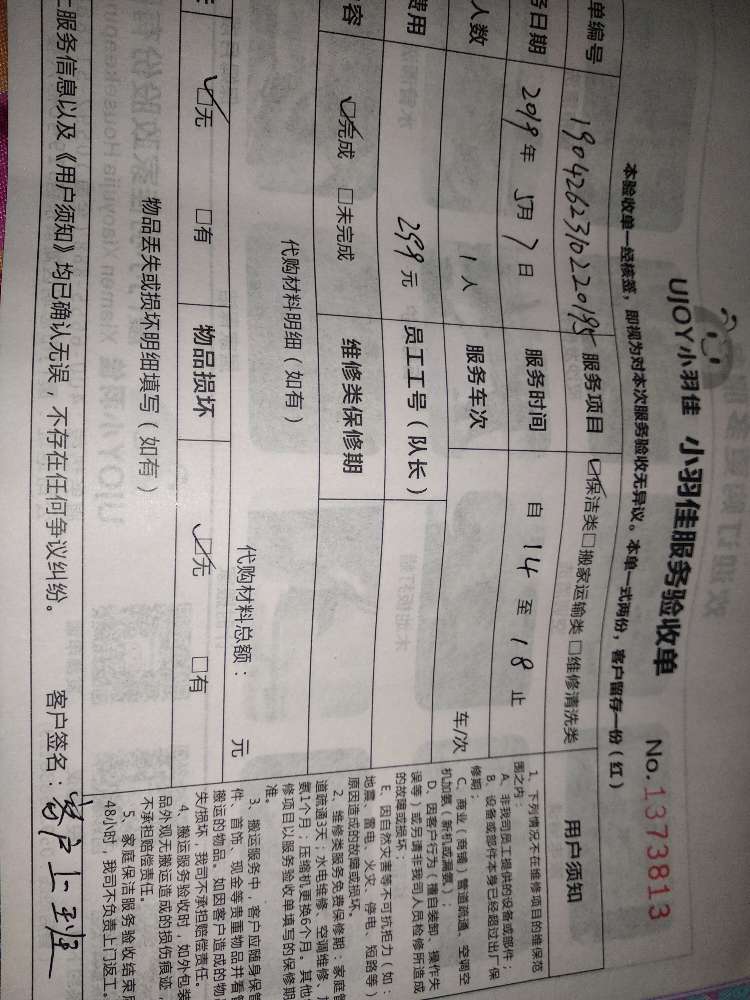 UJOY小羽佳 小羽佳服务验收单 No.1373813
本验收单一经核签，即视为对本次服务验收无异议。本单一式两份，客户留存一份（红）
单编号 1904262310220195 服务项目 保洁类 搬家运输类 维修清洗类
务日期 2019年 5月 7日 服务时间 自 14 至 18 止
人数 1人 服务车次 车/次
费用 299元 员工工号（队长）
容 完成 未完成 维修类保修期
代购材料明细（如有） 代购材料总额： 元
无 有 物品损坏 无 有
物品丢失或损坏明细填写（如有）
服务信息以及《用户须知》均已确认无误，不存在任何争议纠纷。 客户签名：客户上班
用户须知
1、下列情况不在维修项目的维保范
围之内：
A、非我司员工提供的设备或部件；
B、设备或部件本身已经超过出厂保
修期；
C、商业（商铺）管道疏通、空调空
机加氨（新机或漏氨）；
D、因客户行为（擅自装卸、操作失
误等）或另请非我司人员检修所造成
的故障或损坏；
E、因自然灾害等不可抗拒力（如：
地震、雷电、火灾、停电、短路等）
原因造成的故障或损坏。
2、维修类服务免费保修期：家庭管
道疏通3天；水电维修、空调维修、
氨1个月；压缩机更换6个月。其他
修项目以服务验收单填写的保修期
准。
3、搬运服务中，客户应随身保管
件、首饰、现金等贵重物品并看管
搬运的物品。如因客户造成的物
失/损坏，我司不承担赔偿责任。
4、搬运服务验收时，如外包装
品外观无搬运造成的损伤痕迹，
不承担赔偿责任。
5、家庭保洁服务验收结束
48小时，我司不负责上门返工。